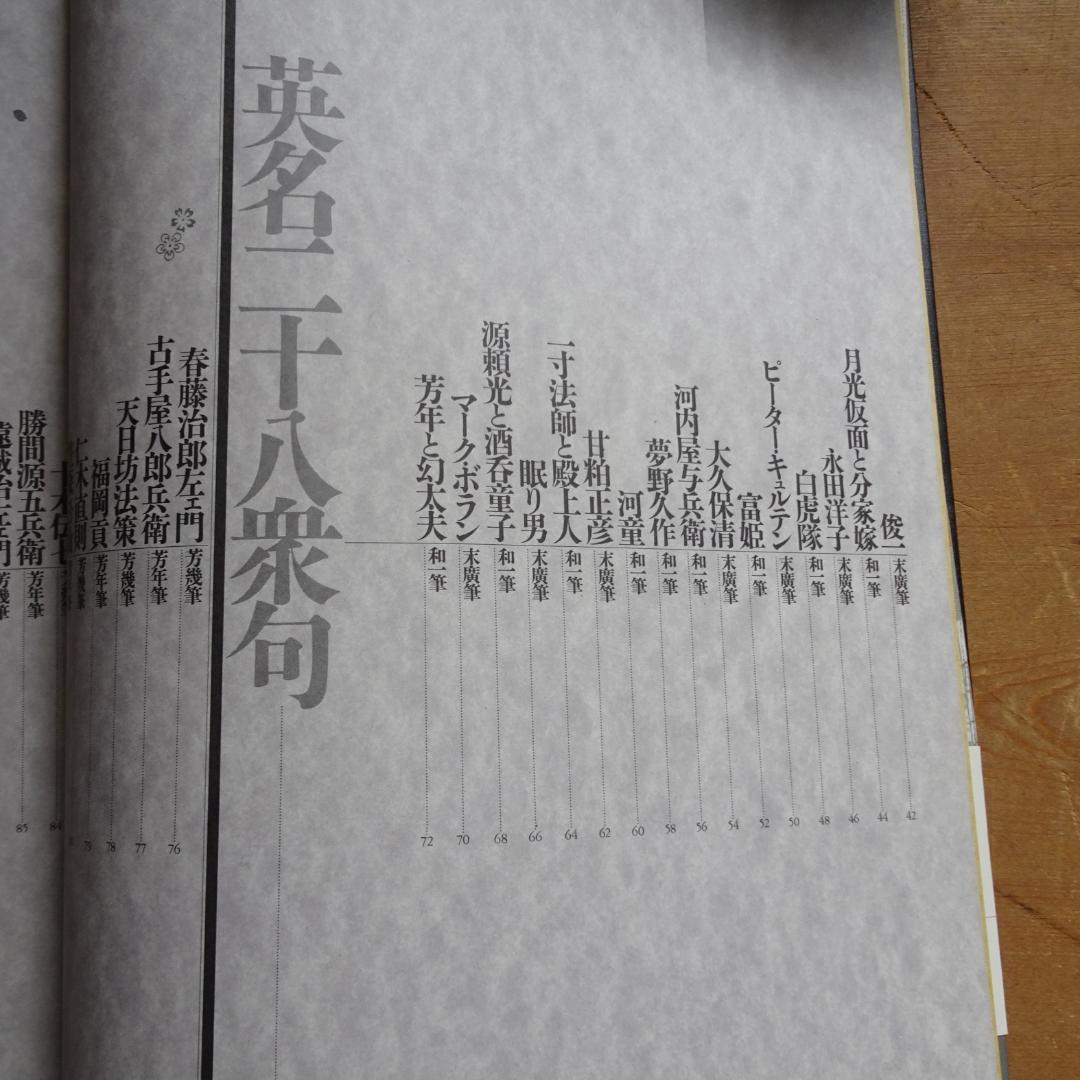 俊一 末廣筆 42
月光仮面と分家嫁 和一筆 44
永田洋子 末廣筆 46
白虎隊 和一筆 48
ピーター・キュルテン 末廣筆 50
富姫 和一筆 52
大久保清 末廣筆 54
河内屋与兵衛 和一筆 56
夢野久作 和一筆 58
河童 和一筆 60
甘粕正彦 末廣筆 62
一寸法師と殿上人 和一筆 64
眠り男 末廣筆 66
源頼光と酒呑童子 和一筆 68
マーク・ボラン 末廣筆 70
芳年と幻太夫 和一筆 72
英名二十八衆句
春藤治郎左ェ門 芳幾筆 76
古手屋八郎兵衛 芳年筆 77
天日坊法策 芳幾筆 78
福岡貢 芳年筆 79
84
勝間源五兵衛 芳年筆 85